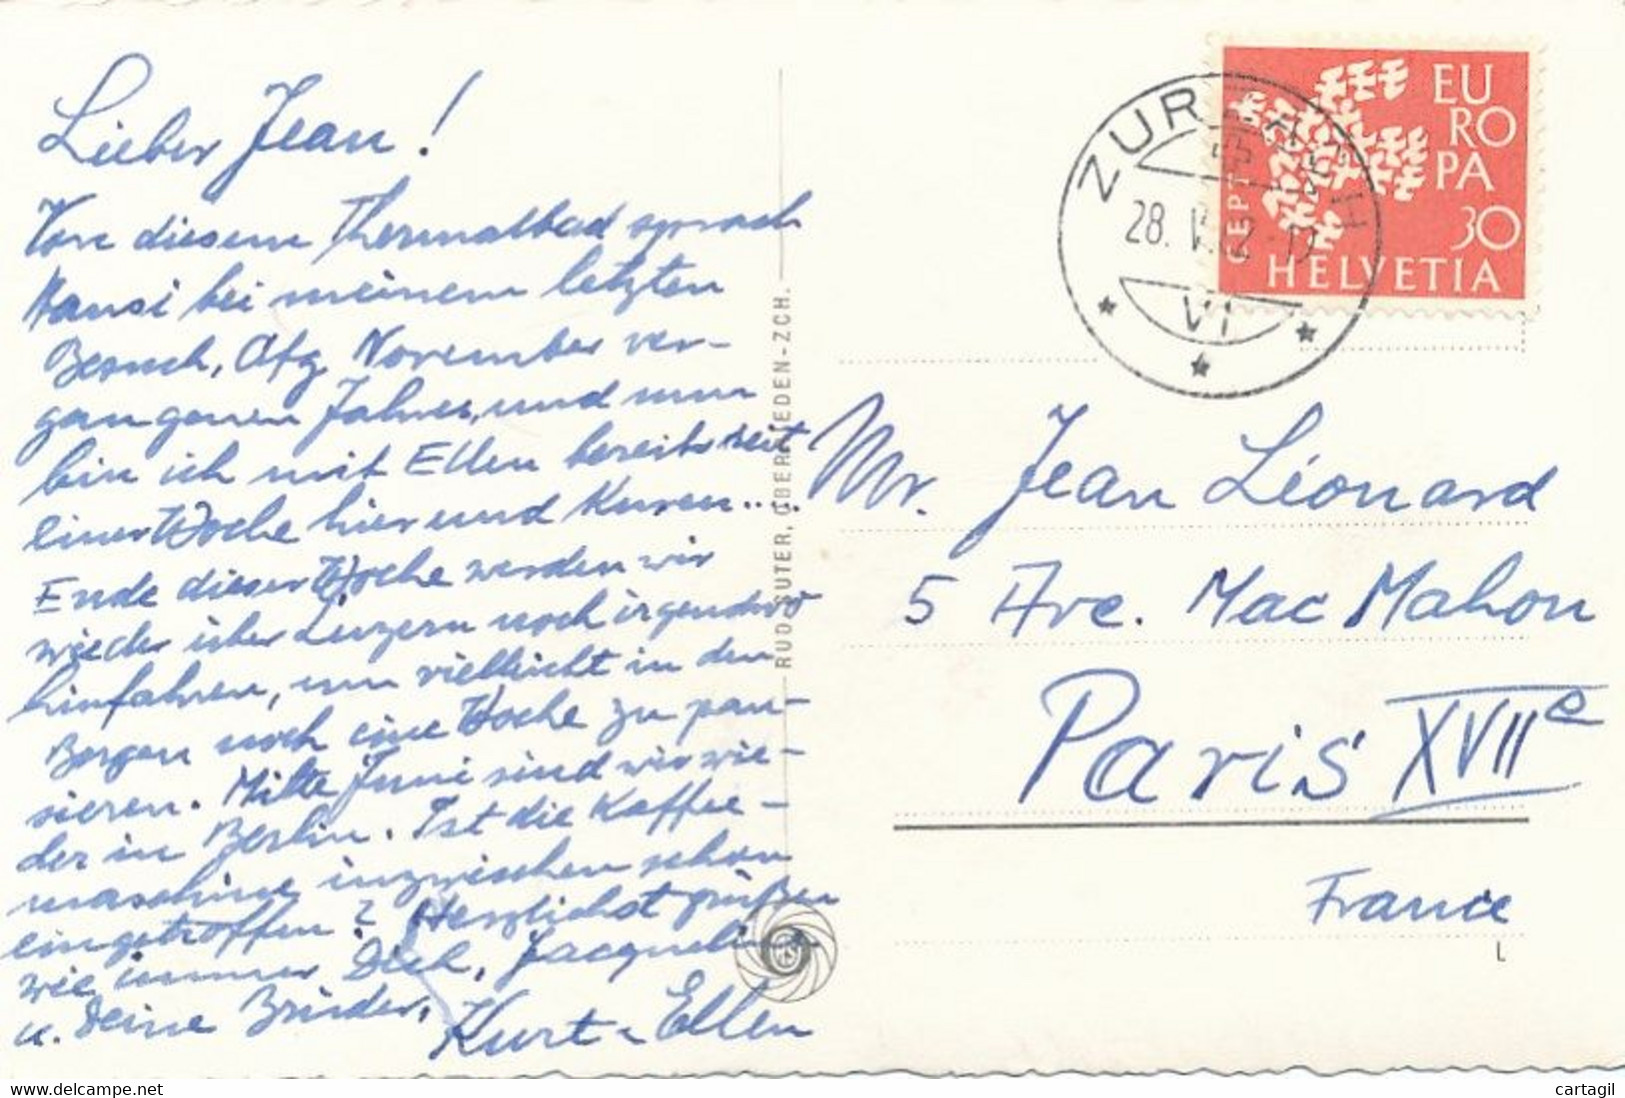 Lieber Jean!
Von diesem Thermalbad sprach
Hansi bei meinem letzten
Besuch, Afg November ver-
gangenen Jahres, und nun
bin ich mit Ellen bereits seit
einer Woche hier und Kuren...
Ende dieser Woche werden wir
wieder über Luzern noch irgendwo
hinfahren, um vielleicht in den
Bergen noch eine Woche zu pau-
sieren. Mitte Juni sind wir wie-
der in Berlin. Ist die Kaffee-
maschine inzwischen schon
eingetroffen? Herzlichst grüßen
wie immer Dich, Jacqueline
u. Deine Brüder,
Kurt - Ellen
RUD. SUTER, OBERRIEDEN-ZCH.
ZURZACH
28. V. 62 - 17
VI
EU
RO
PA
30
CEPT
HELVETIA
Mr. Jean Léonard
5 Ave. Mac Mahon
Paris XVIIe
France
L
www.delcampe.net
cartagil